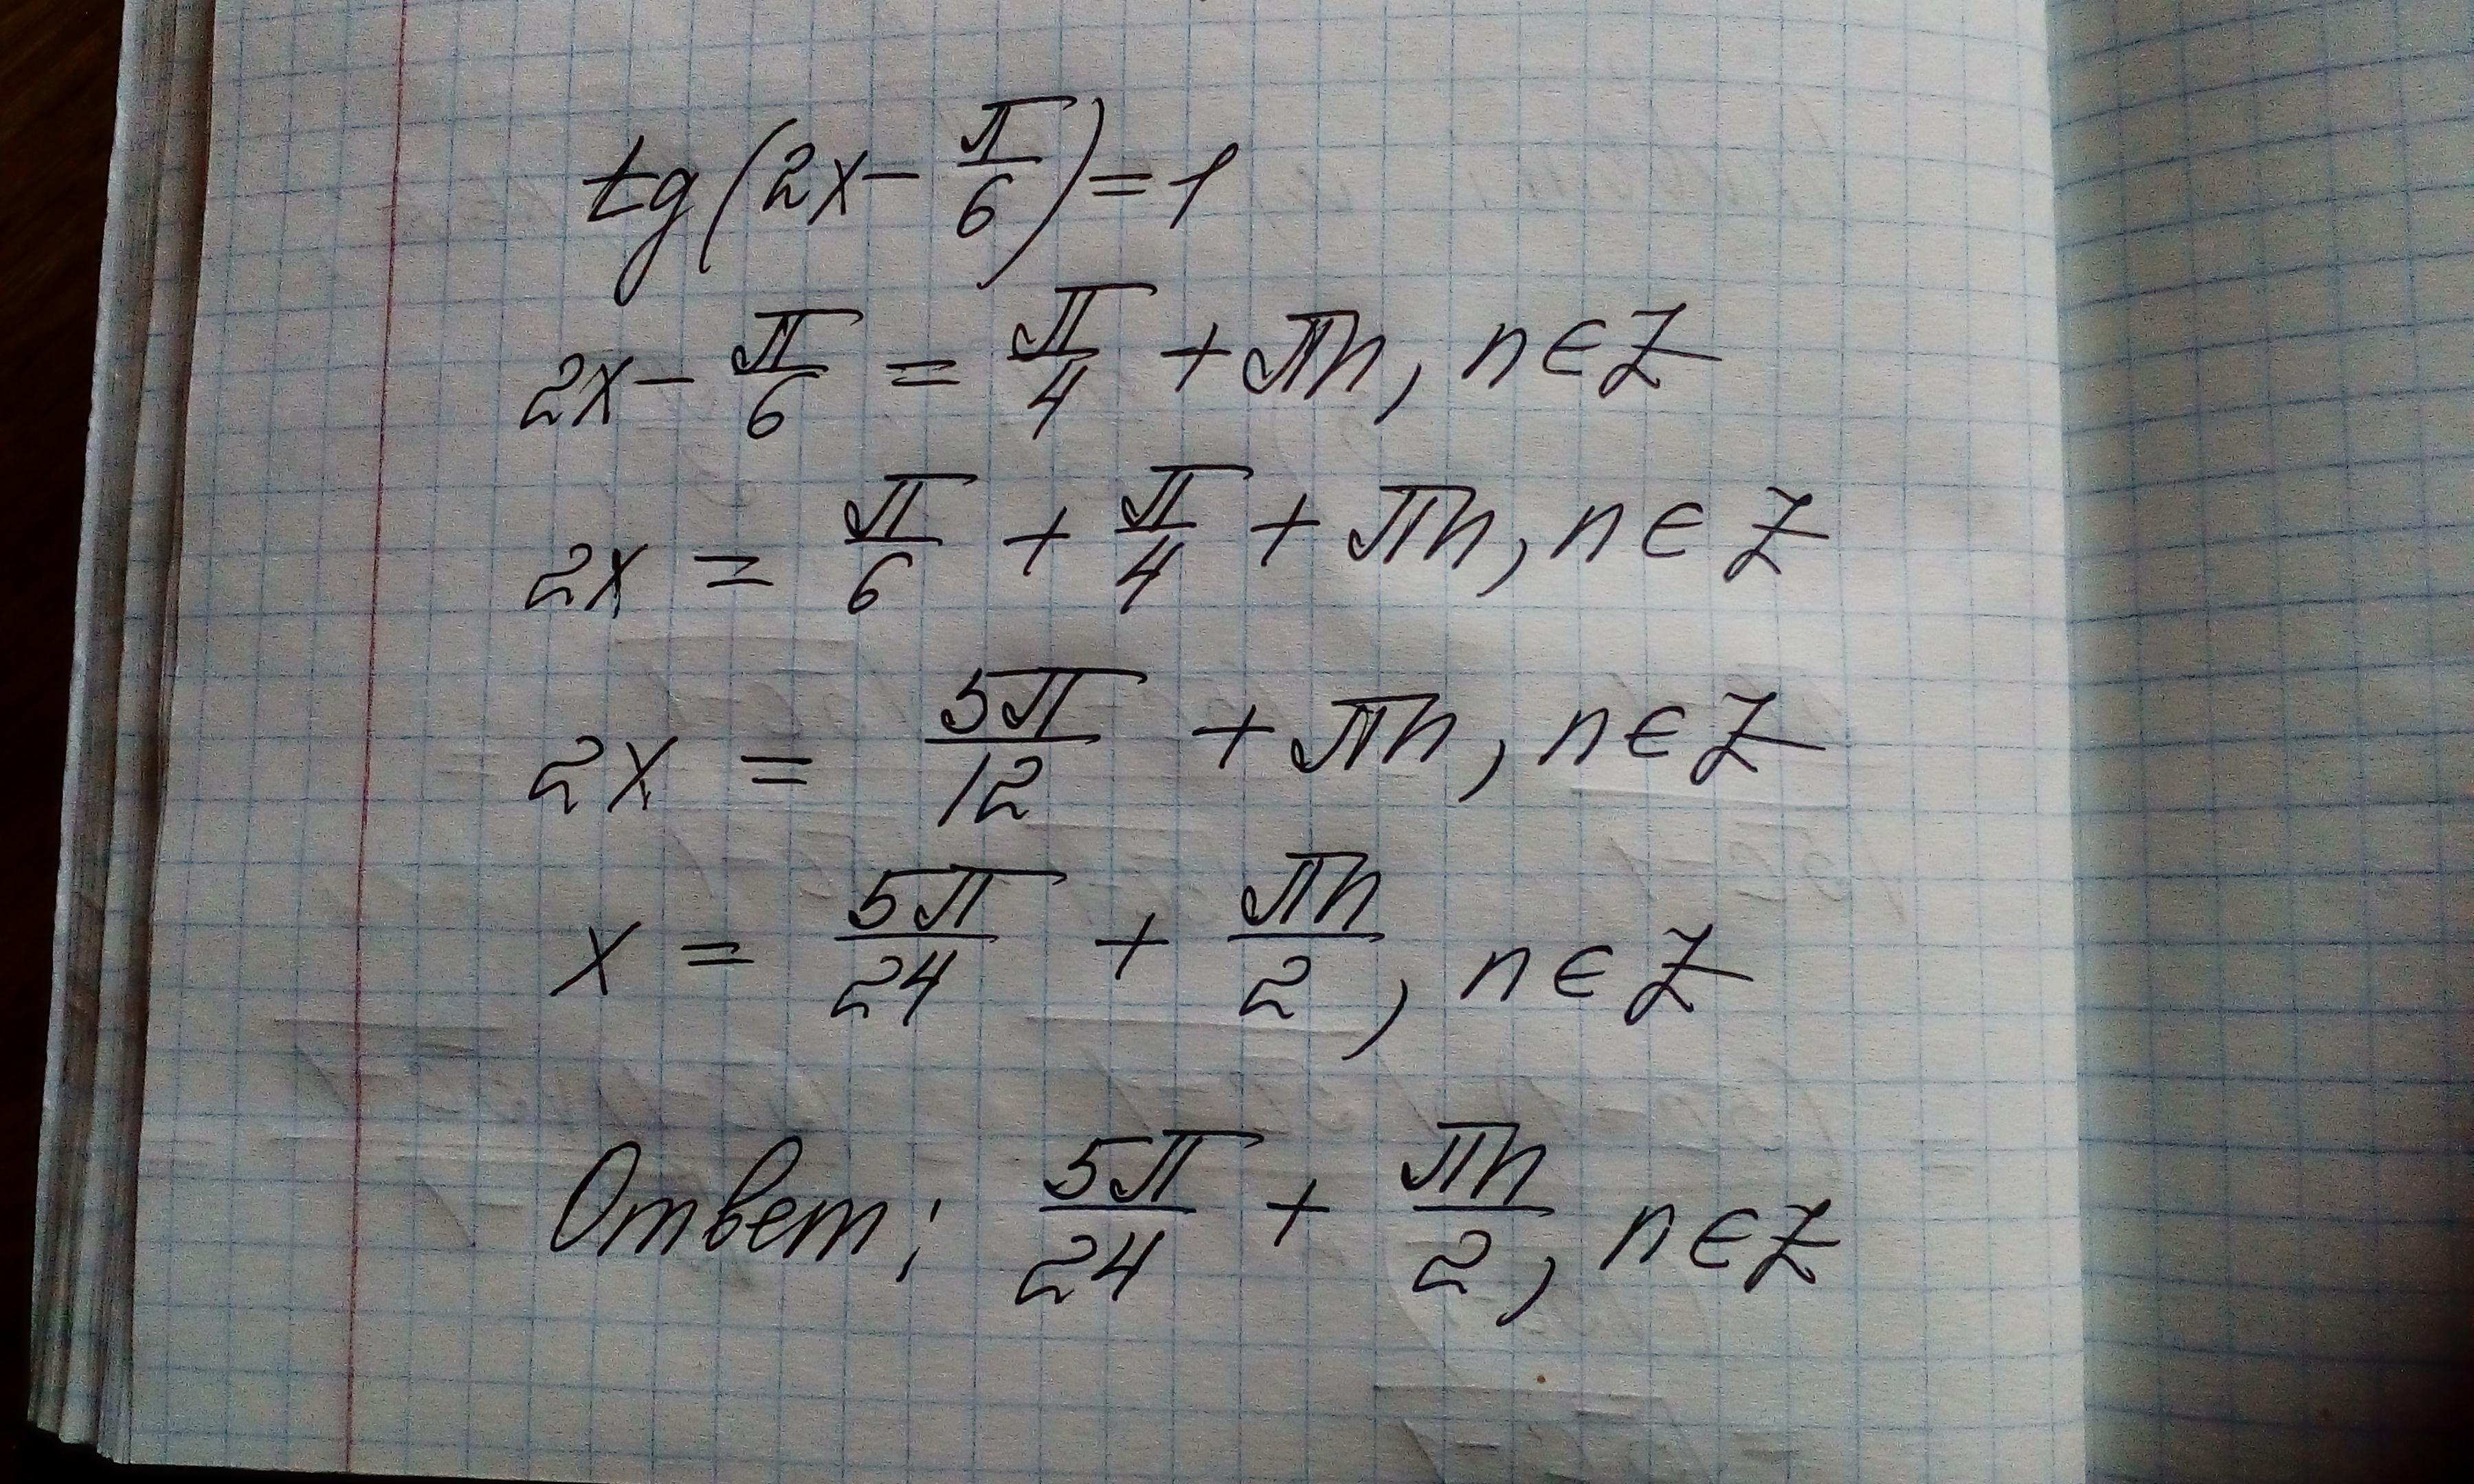 tg(2x - π/6) = 1
2x - π/6 = π/4 + πn, n ∈ Z
2x = π/6 + π/4 + πn, n ∈ Z
2x = 5π/12 + πn, n ∈ Z
x = 5π/24 + πn/2, n ∈ Z
Ответ: 5π/24 + πn/2, n ∈ Z